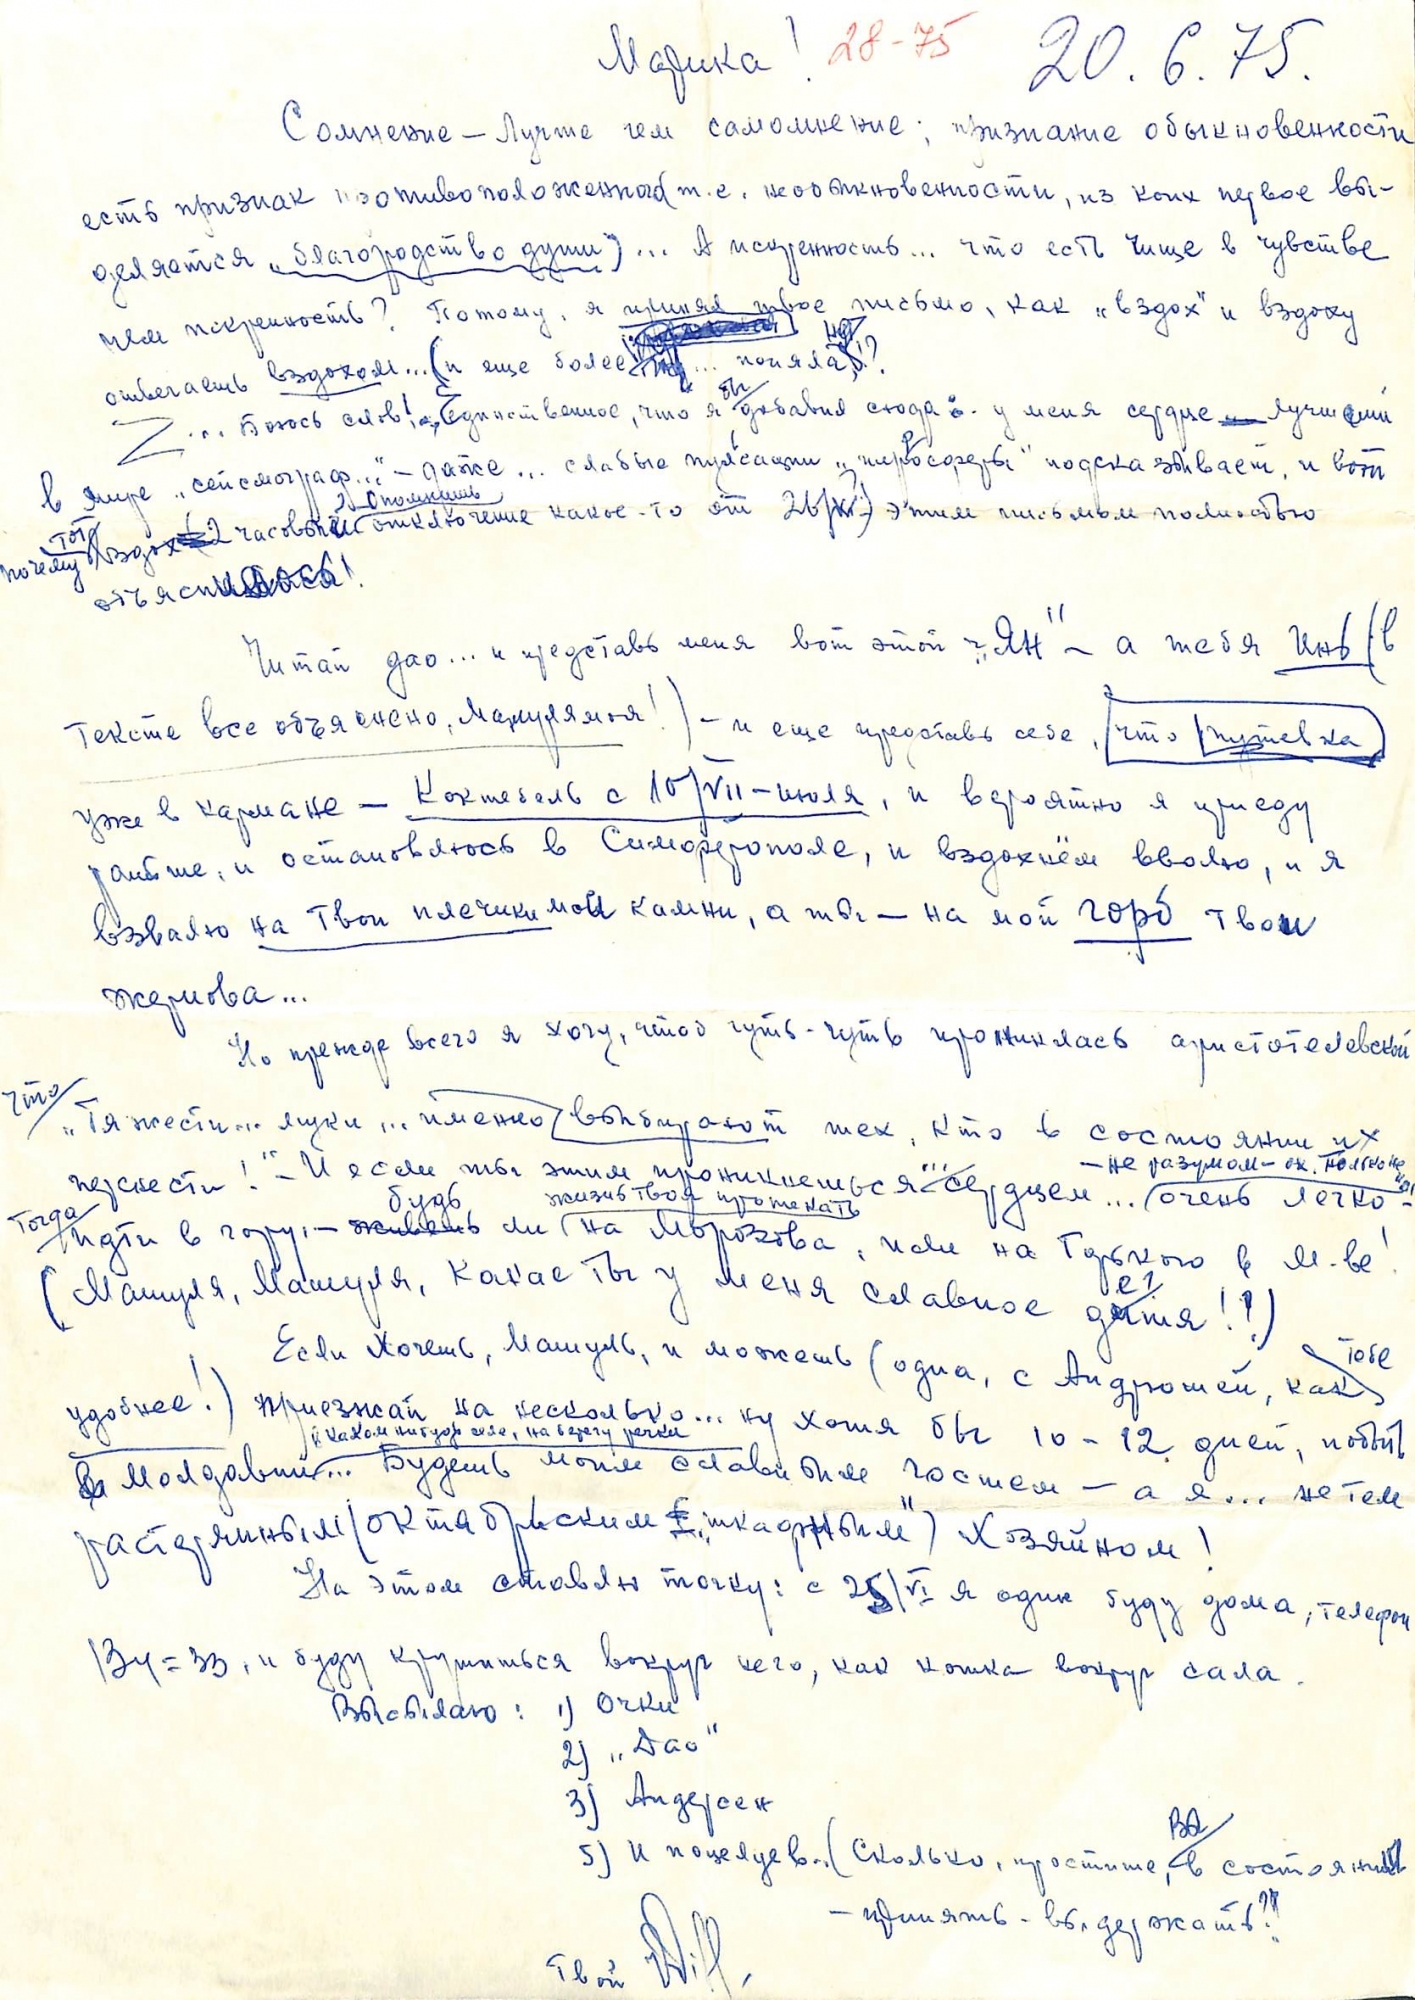 Марика! 28-75 20.6.75.
Сомнение — лучше чем самомнение; признание обыкновенности
есть признак противоположенной (т.е. необыкновенности, из коих первое вы-
деляется „благородство души)... А искренность... что есть чище в чувстве
чем искренность? Потому, я принял твое письмо, как „вздох" и вздоху
отвечаешь вздохом...(и еще более ... поняла я?
... Боюсь слов! Единственное, что я бы добавил сюда: у меня сердце — лучший
в мире „сейсмограф..." — даже... слабые пульсации подсказывает, и вот
почему тот вздох 2 часовой (вспомнишь отключение какое-то от 26/ ) этим письмом полностью
объяснилось!
Читай дао... и представь меня вот этой „Ян" — а тебя Инь (в
тексте все объяснено, !) — и еще представь себе, что путевка
уже в кармане — Коктебель с 10/VII - июля, и вероятно я приеду
раньше, и остановлюсь в Симферополе, и вздохнём вволю, и я
взвалю на твои плечики мои камни, а ты — на мой горб твои
жернова...
Но прежде всего я хочу, чтоб чуть-чуть прониклась аристотелевской
что „Тяжести... муки... именно выбирают тех, кто в состоянии их
перенести!" — И если ты этим проникнешься сердцем... — не разумом — очень легко
тогда идти в гору, — будь ли жизнь твоя протекать на Морозова, или на Горького в М-ве!
(Машуля, Машуля, какое ты у меня славное детя!!)
Если хочешь, Машуль, и можешь (одна, с Андрюшей, как тебе
удобнее!) приезжай на несколько... ну хотя бы 10 - 12 дней, побыть
в Молдавии... в каком нибудь селе, на берегу речки Будешь моим славным гостем — а я... не тем
растерянным (октябрьским ) хозяином!
На этом ставлю точку: с 25/VI я один буду дома, телефон
и буду крутиться вокруг него, как кошка вокруг сала.
Высылаю: 1) Очки
2) „Дао"
3) Андерсен
5) И поцелуев..(Сколько, простите, Вы в состоянии
— принять — выдержать?!
Твой Will,